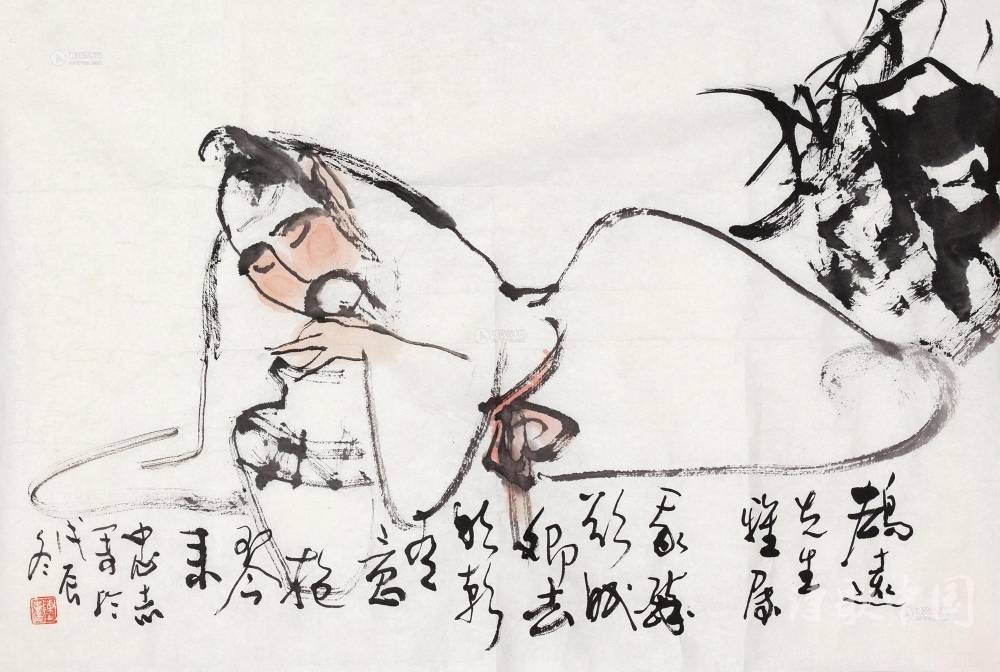 遠
先生
雅属
我醉
欲眠
卿去
明朝
有
意
抱
琴
来
忠志
写於
戊辰
冬